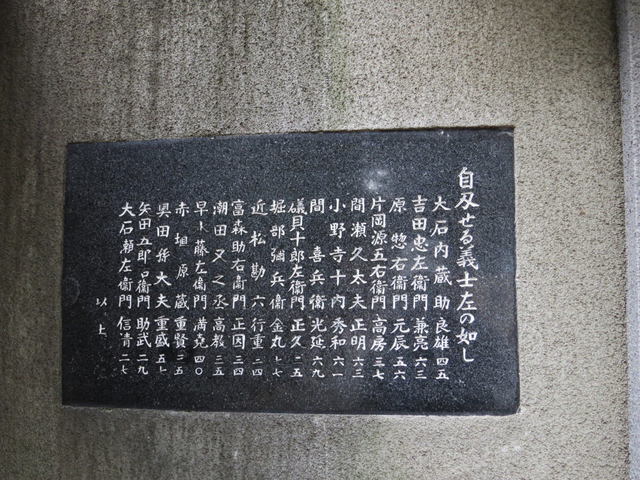 自刄せる義士左の如し
大石内蔵助良雄四五
吉田忠左衛門兼亮六三
原惣右衛門元辰五六
片岡源五右衛門高房三七
間瀬久太夫正明六三
小野寺十内秀和六一
間喜兵衛光延六九
礒貝十郎左衛門正久二五
堀部弥兵衛金丸七七
近松勘六行重三四
富森助右衛門正因三四
潮田又之丞高教三五
早水藤左衛門満尭四〇
赤垣源蔵重賢三五
奥田孫太夫重盛五七
矢田五郎右衛門助武二九
大石瀬左衛門信清二七
以上